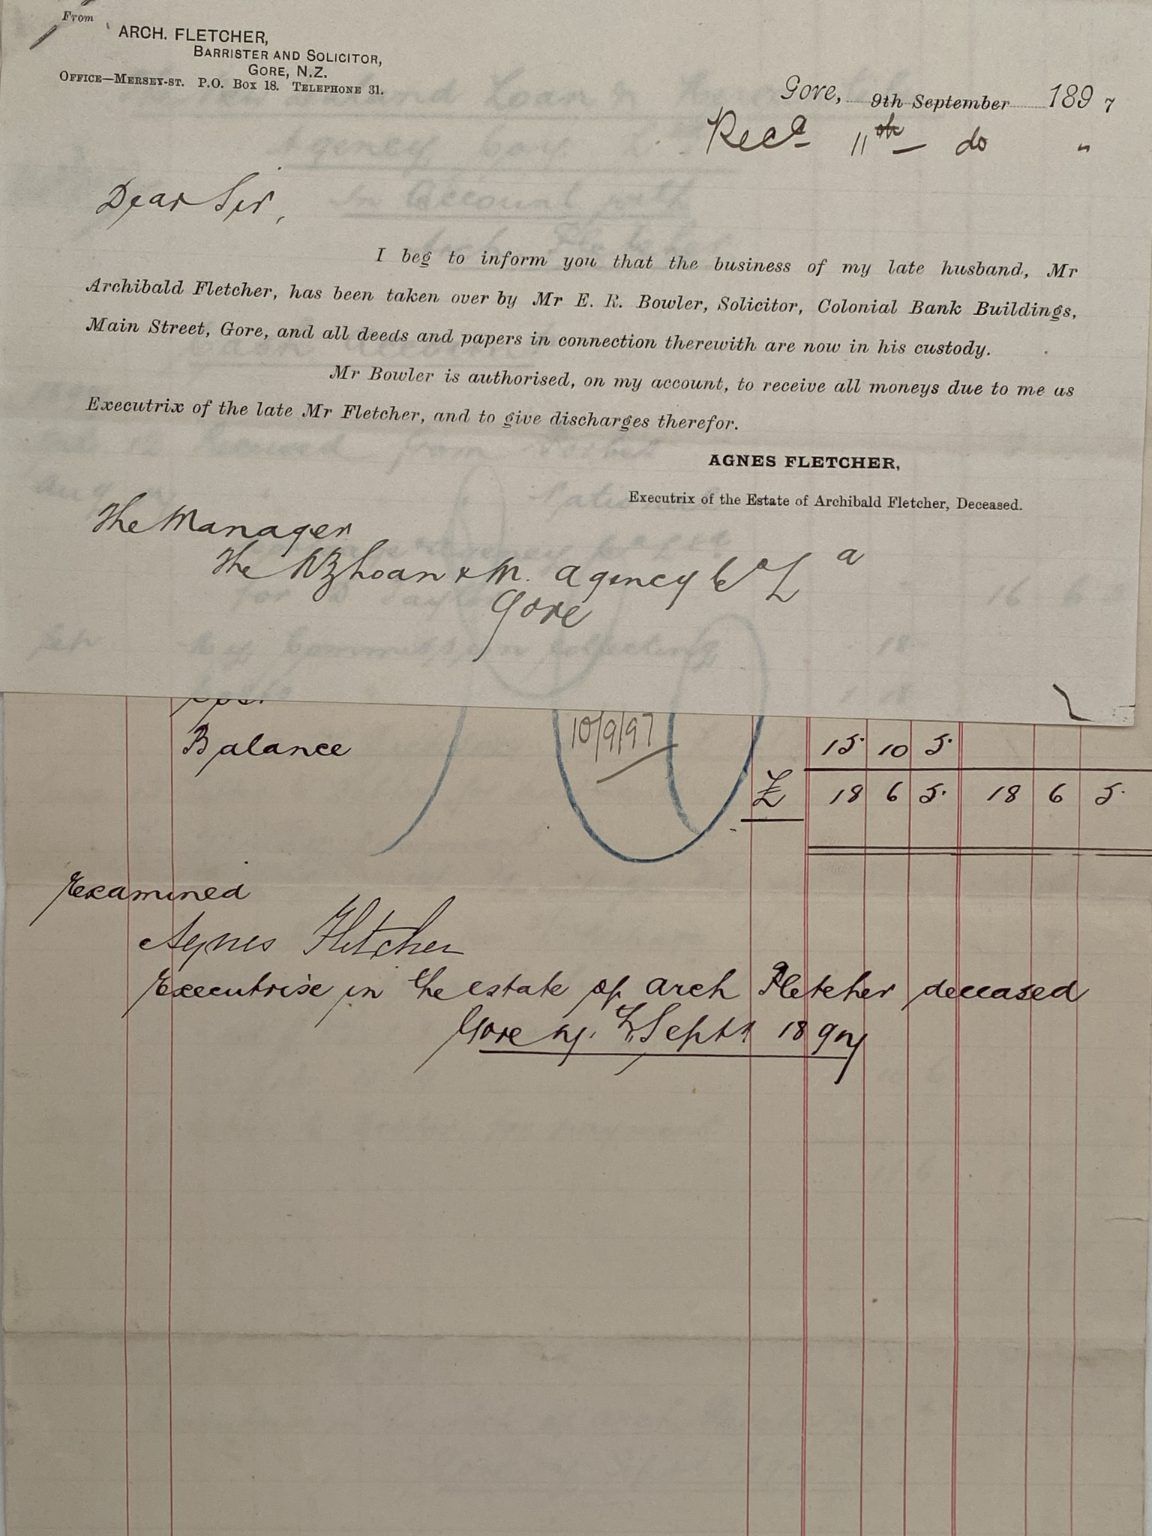 From
ARCH. FLETCHER,
BARRISTER AND SOLICITOR,
GORE, N.Z.
OFFICE—MERSEY-ST. P.O. BOX 18. TELEPHONE 31.
Gore, 9th September 1897
Recd 11th do "
Dear Sir,
I beg to inform you that the business of my late husband, Mr
Archibald Fletcher, has been taken over by Mr E. R. Bowler, Solicitor, Colonial Bank Buildings,
Main Street, Gore, and all deeds and papers in connection therewith are now in his custody.
Mr Bowler is authorised, on my account, to receive all moneys due to me as
Executrix of the late Mr Fletcher, and to give discharges therefor.
AGNES FLETCHER,
Executrix of the Estate of Archibald Fletcher, Deceased.
The Manager
The NZ Loan & M. Agency Co Ld
Gore
Balance 15 10 5
10/9/97
£ 18 6 5 18 6 5
Examined
Agnes Fletcher
Executrix in the estate of Arch Fletcher deceased
Gore Septr 1897